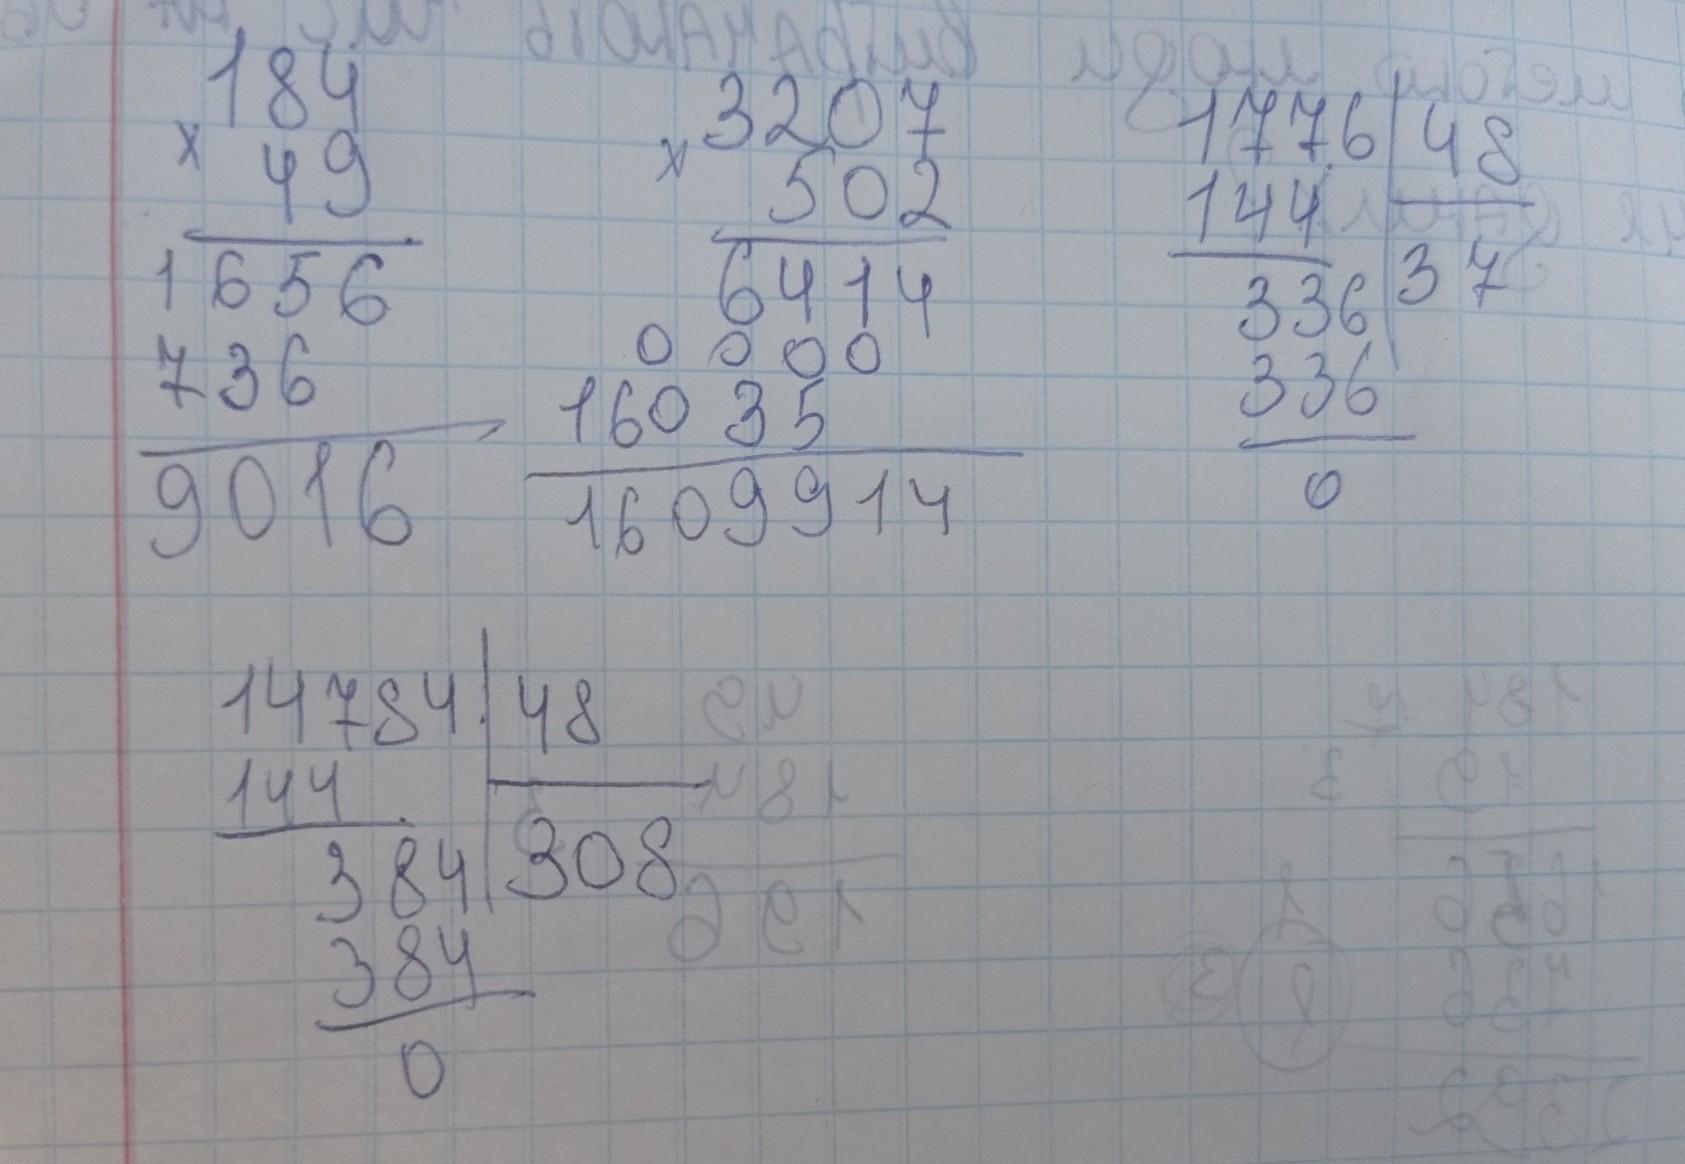 184
x 49
1656
736
9016
3207
x 502
6414
0000
16035
1609914
1776 48
144
336 37
336
0
14784 48
144
384 308
384
0